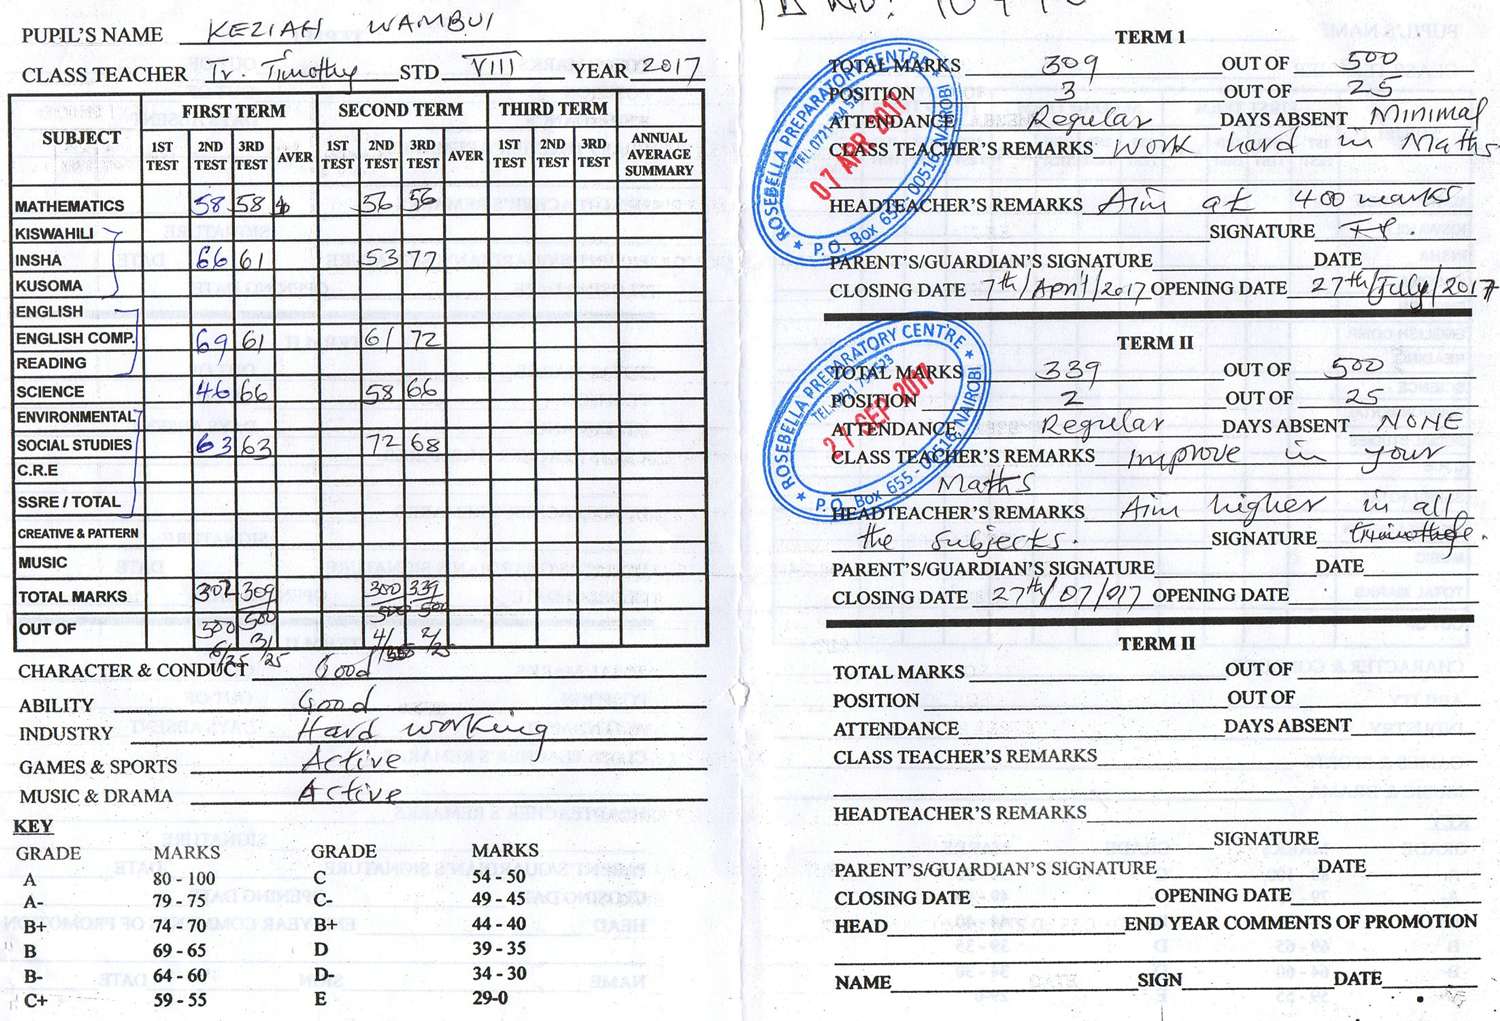 PUPIL'S NAME KEZIAH WAMBUI
CLASS TEACHER Tr. Timothy STD VIII YEAR 2017
SUBJECT FIRST TERM SECOND TERM THIRD TERM
1ST TEST 2ND TEST 3RD TEST AVER 1ST TEST 2ND TEST 3RD TEST AVER 1ST TEST 2ND TEST 3RD TEST ANNUAL AVERAGE SUMMARY
MATHEMATICS 58 58 56 56
KISWAHILI
INSHA 66 61 53 77
KUSOMA
ENGLISH
ENGLISH COMP. 69 61 61 72
READING
SCIENCE 46 66 58 66
ENVIRONMENTAL
SOCIAL STUDIES 63 63 72 68
C.R.E
SSRE / TOTAL
CREATIVE & PATTERN
MUSIC
TOTAL MARKS 302 309 300 339
OUT OF 500 500 500 500
6/25 3/25 4/ 2/25
CHARACTER & CONDUCT Good
ABILITY Good
INDUSTRY Hard working
GAMES & SPORTS Active
MUSIC & DRAMA Active
KEY
GRADE MARKS GRADE MARKS
A 80 - 100 C 54 - 50
A- 79 - 75 C- 49 - 45
B+ 74 - 70 B+ 44 - 40
B 69 - 65 D 39 - 35
B- 64 - 60 D- 34 - 30
C+ 59 - 55 E 29-0
TERM 1
TOTAL MARKS 309 OUT OF 500
POSITION 3 OUT OF 25
ATTENDANCE Regular DAYS ABSENT Minimal
CLASS TEACHER'S REMARKS Work hard in Maths
HEADTEACHER'S REMARKS Aim at 400 marks
SIGNATURE
PARENT'S/GUARDIAN'S SIGNATURE DATE
CLOSING DATE 7th/April/2017 OPENING DATE 27th/July/2017
ROSEBELLA PREPARATORY CENTRE
07 APR 2017
P.O. Box 655 - 00516, NAIROBI
TERM II
TOTAL MARKS 339 OUT OF 500
POSITION 2 OUT OF 25
ATTENDANCE Regular DAYS ABSENT NONE
CLASS TEACHER'S REMARKS Improve in your
Maths
HEADTEACHER'S REMARKS Aim higher in all
the subjects. SIGNATURE
PARENT'S/GUARDIAN'S SIGNATURE DATE
CLOSING DATE 27th/07/017 OPENING DATE
ROSEBELLA PREPARATORY CENTRE
SEP 2017
P.O. Box 655 - 00516, NAIROBI
TERM II
TOTAL MARKS OUT OF
POSITION OUT OF
ATTENDANCE DAYS ABSENT
CLASS TEACHER'S REMARKS
HEADTEACHER'S REMARKS
SIGNATURE
PARENT'S/GUARDIAN'S SIGNATURE DATE
CLOSING DATE OPENING DATE
HEAD END YEAR COMMENTS OF PROMOTION
NAME SIGN DATE